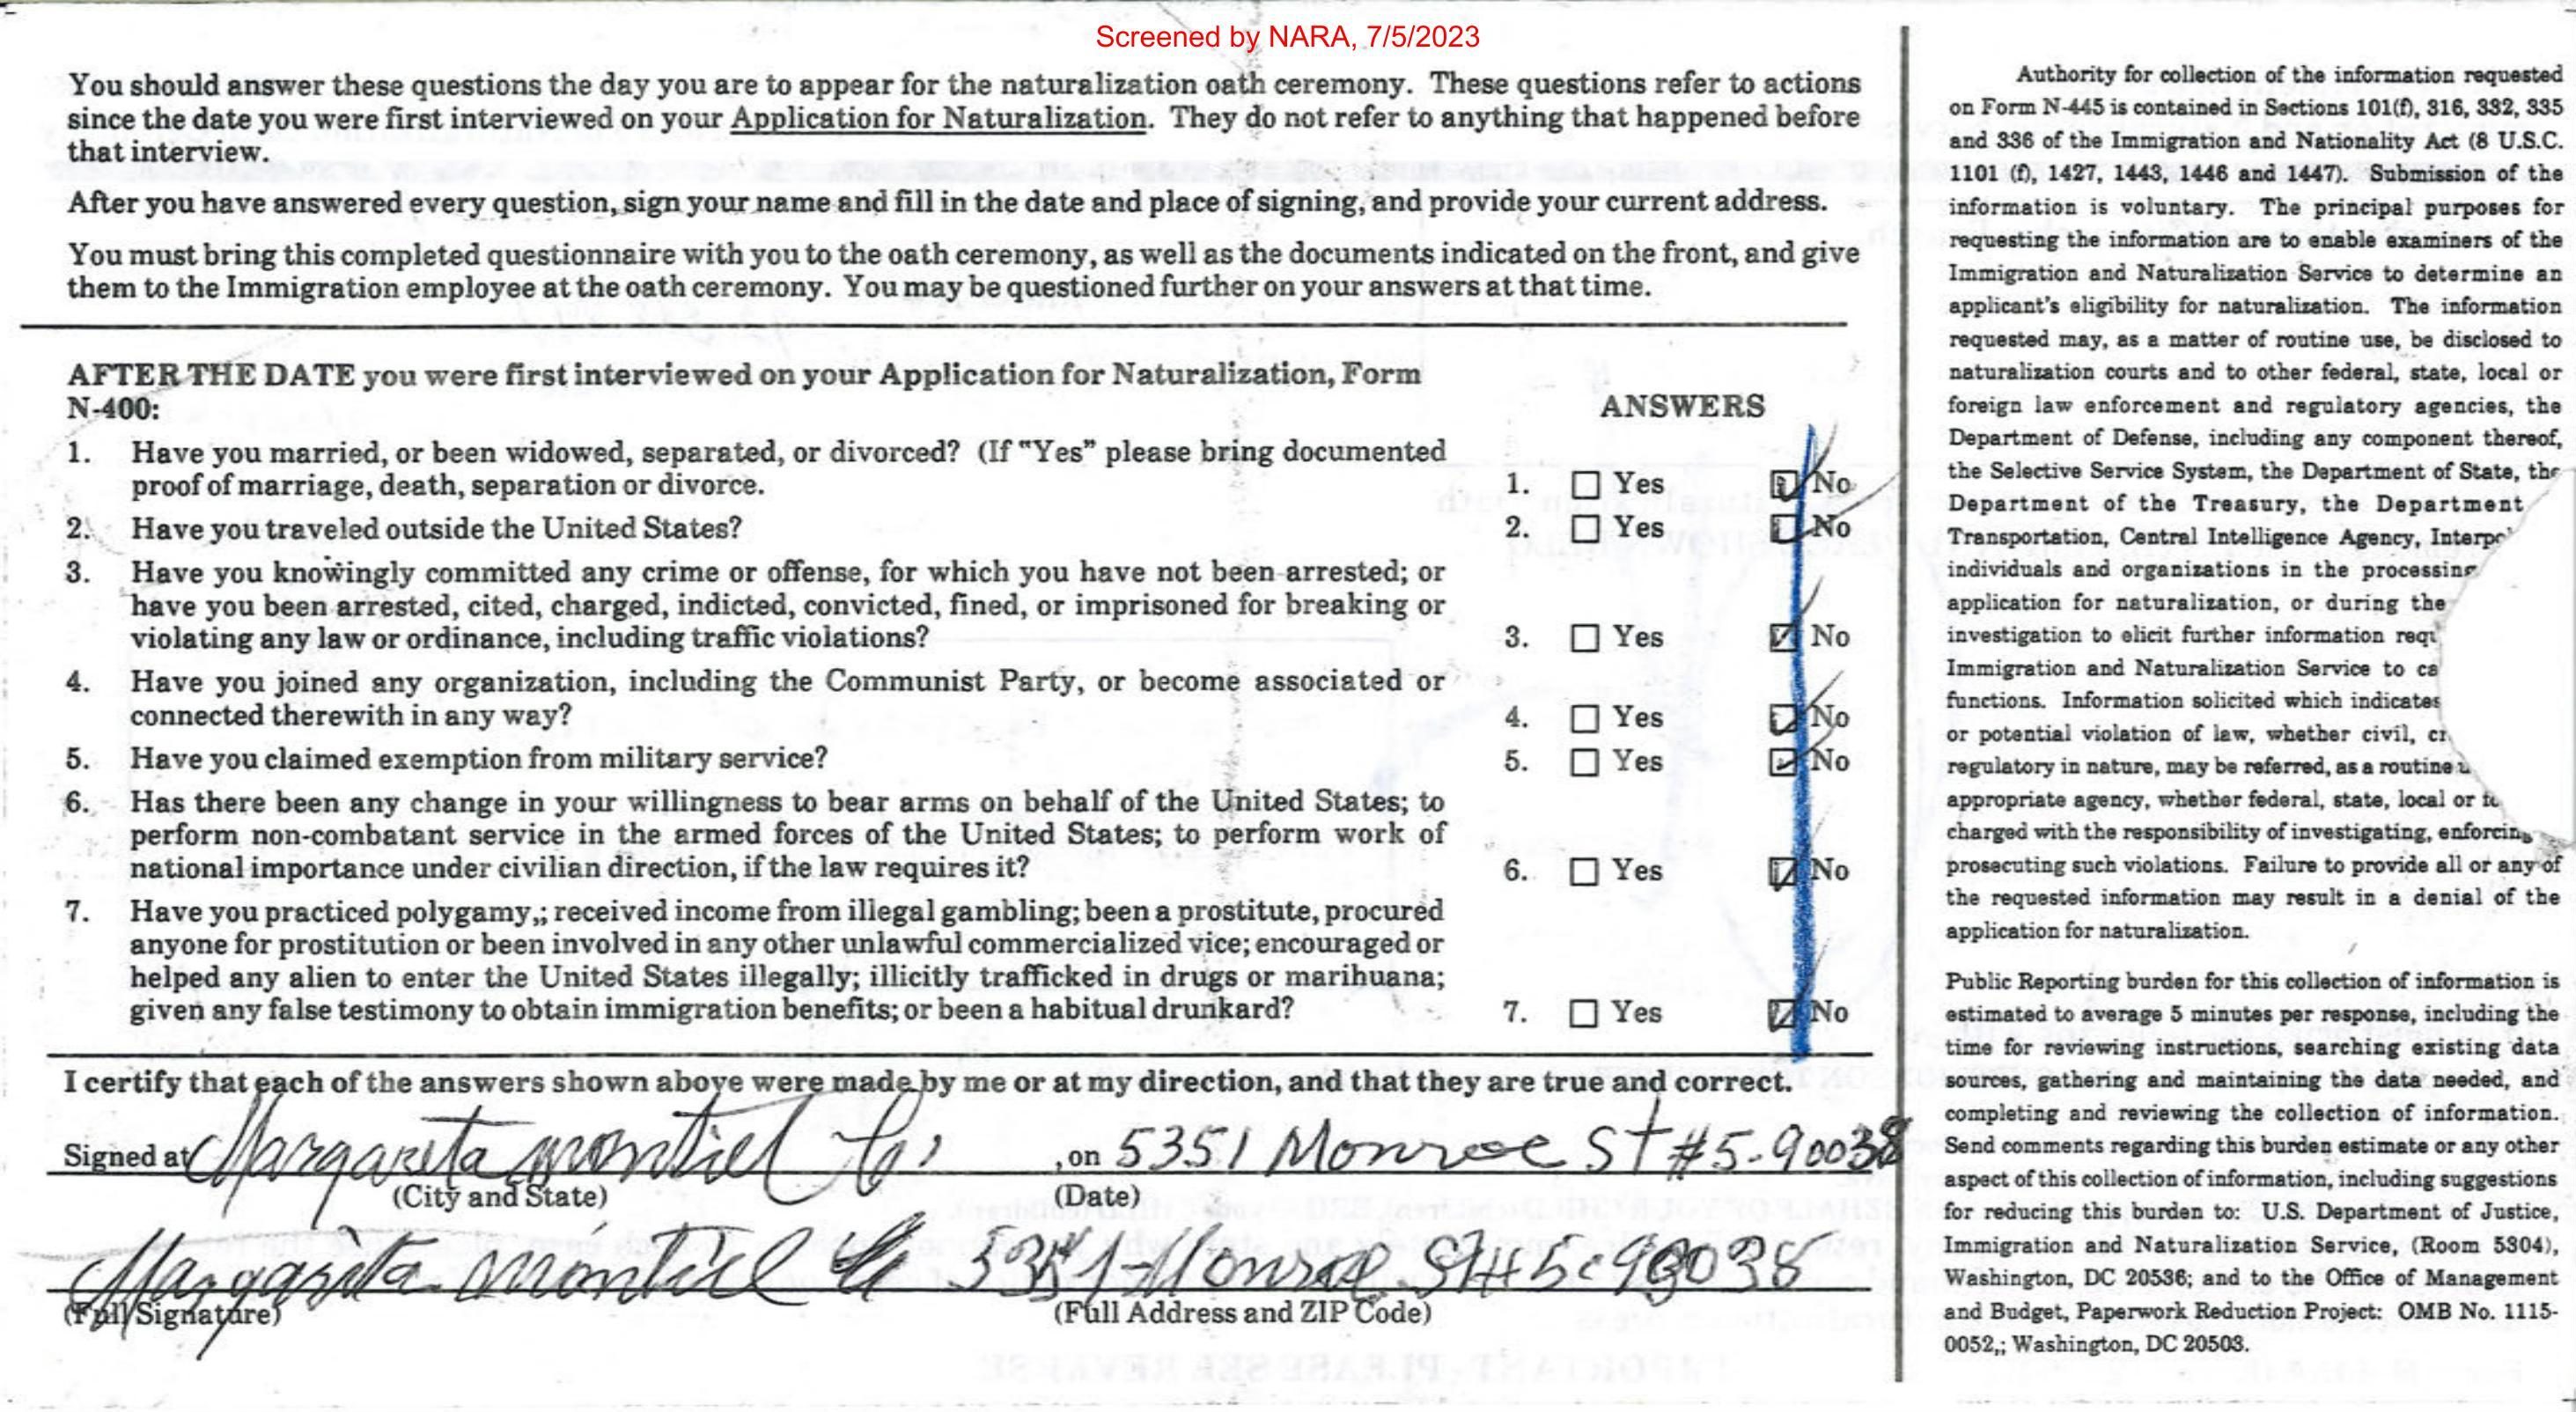 Screened by NARA, 7/5/2023
You should answer these questions the day you are to appear for the naturalization oath ceremony. These questions refer to actions
since the date you were first interviewed on your Application for Naturalization. They do not refer to anything that happened before
that interview.
After you have answered every question, sign your name and fill in the date and place of signing, and provide your current address.
You must bring this completed questionnaire with you to the oath ceremony, as well as the documents indicated on the front, and give
them to the Immigration employee at the oath ceremony. You may be questioned further on your answers at that time.
AFTER THE DATE you were first interviewed on your Application for Naturalization, Form
N-400:
ANSWERS
1. Have you married, or been widowed, separated, or divorced? (If "Yes" please bring documented
proof of marriage, death, separation or divorce.
1. Yes No
2. Have you traveled outside the United States?
2. Yes No
3. Have you knowingly committed any crime or offense, for which you have not been arrested; or
have you been arrested, cited, charged, indicted, convicted, fined, or imprisoned for breaking or
violating any law or ordinance, including traffic violations?
3. Yes No
4. Have you joined any organization, including the Communist Party, or become associated or
connected therewith in any way?
4. Yes No
5. Have you claimed exemption from military service?
5. Yes No
6. Has there been any change in your willingness to bear arms on behalf of the United States; to
perform non-combatant service in the armed forces of the United States; to perform work of
national importance under civilian direction, if the law requires it?
6. Yes No
7. Have you practiced polygamy,; received income from illegal gambling; been a prostitute, procured
anyone for prostitution or been involved in any other unlawful commercialized vice; encouraged or
helped any alien to enter the United States illegally; illicitly trafficked in drugs or marihuana;
given any false testimony to obtain immigration benefits; or been a habitual drunkard?
7. Yes No
I certify that each of the answers shown above were made by me or at my direction, and that they are true and correct.
Signed at Margarita montiel , on 5351 Monroe St #5-90038
(City and State) (Date)
Margarita montiel 5351-Monroe St#5 90038
(Full Signature) (Full Address and ZIP Code)
Authority for collection of the information requested
on Form N-445 is contained in Sections 101(f), 316, 332, 335
and 336 of the Immigration and Nationality Act (8 U.S.C.
1101 (f), 1427, 1443, 1446 and 1447). Submission of the
information is voluntary. The principal purposes for
requesting the information are to enable examiners of the
Immigration and Naturalization Service to determine an
applicant's eligibility for naturalization. The information
requested may, as a matter of routine use, be disclosed to
naturalization courts and to other federal, state, local or
foreign law enforcement and regulatory agencies, the
Department of Defense, including any component thereof,
the Selective Service System, the Department of State, the
Department of the Treasury, the Department
Transportation, Central Intelligence Agency,
individuals and organizations in the processing
application for naturalization, or during the
investigation to elicit further information
Immigration and Naturalization Service to
functions. Information solicited which indicates
or potential violation of law, whether civil,
regulatory in nature, may be referred, as a routine
appropriate agency, whether federal, state, local or
charged with the responsibility of investigating, enforcing
prosecuting such violations. Failure to provide all or any of
the requested information may result in a denial of the
application for naturalization.
Public Reporting burden for this collection of information is
estimated to average 5 minutes per response, including the
time for reviewing instructions, searching existing data
sources, gathering and maintaining the data needed, and
completing and reviewing the collection of information.
Send comments regarding this burden estimate or any other
aspect of this collection of information, including suggestions
for reducing this burden to: U.S. Department of Justice,
Immigration and Naturalization Service, (Room 5304),
Washington, DC 20536; and to the Office of Management
and Budget, Paperwork Reduction Project: OMB No. 1115-
0052,; Washington, DC 20503.